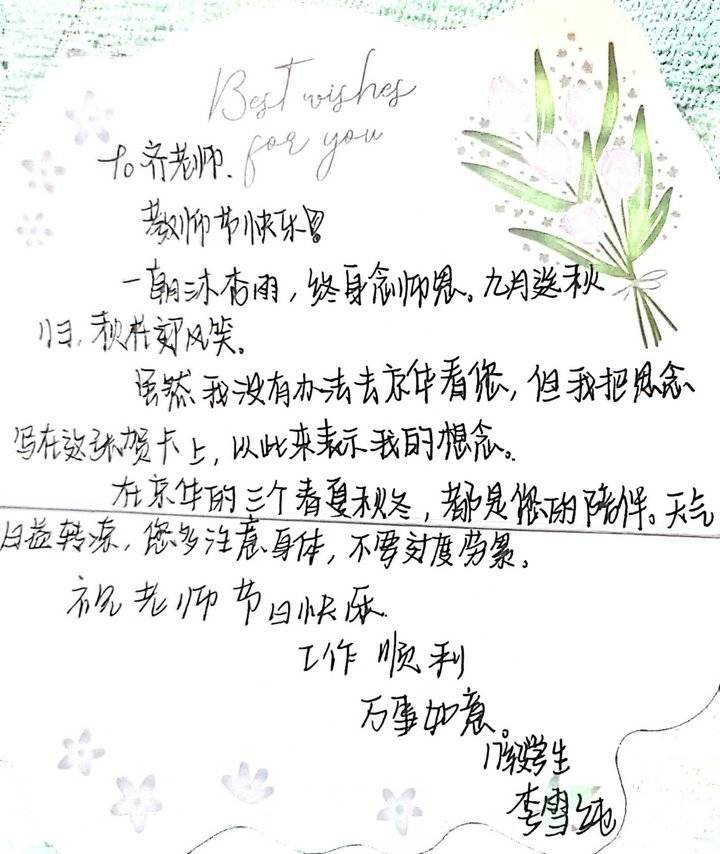 Best wishes
for you
To 齐老师.
教师节快乐!
一朝沐杏雨,终身念师恩。九月送秋
归,秋桂郊风笑。
虽然我没有办法去京华看您,但我把思念
写在这张贺卡上,以此来表示我的想念。
在京华的三个春夏秋冬,都是您的陪伴。天气
日益转凉,您多注意身体,不要过度劳累。
祝老师节日快乐
工作顺利
万事如意。
17级学生
李雪纯